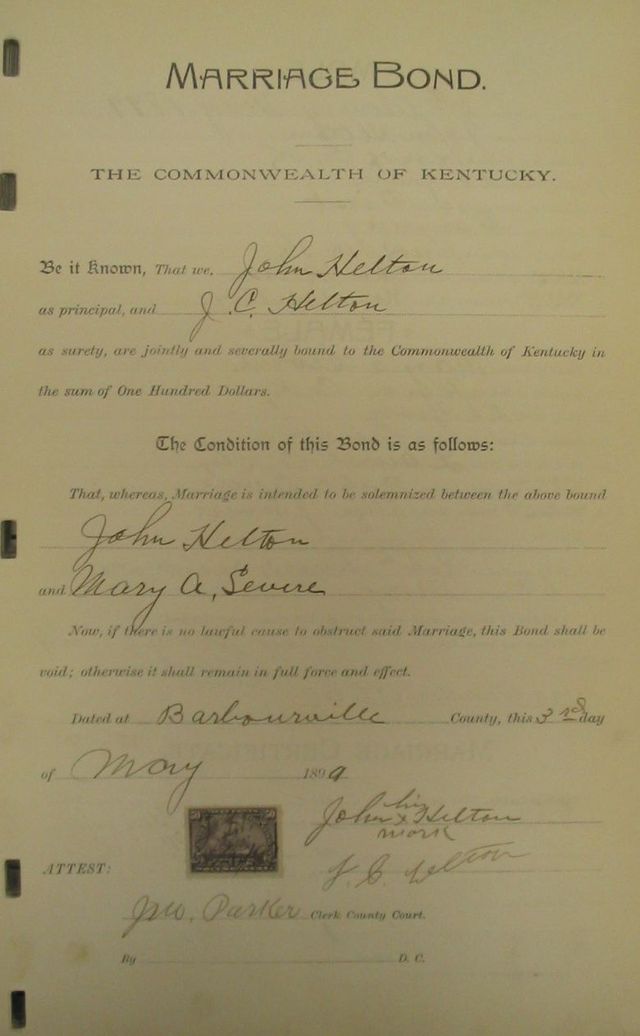 MARRIAGE BOND.
THE COMMONWEALTH OF KENTUCKY.
Be it Known, That we, John Helton
as principal, and J. C. Helton
as surety, are jointly and severally bound to the Commonwealth of Kentucky in
the sum of One Hundred Dollars.
The Condition of this Bond is as follows:
That, whereas, Marriage is intended to be solemnized between the above bound
John Helton
and Mary A, Severe
Now, if there is no lawful cause to obstruct said Marriage, this Bond shall be
void; otherwise it shall remain in full force and effect.
Dated at Barbourville County, this 3rd day
of May 1899
his
John x Helton
mark
ATTEST: J. C. Helton
J.W. Parker Clerk County Court.
By D. C.